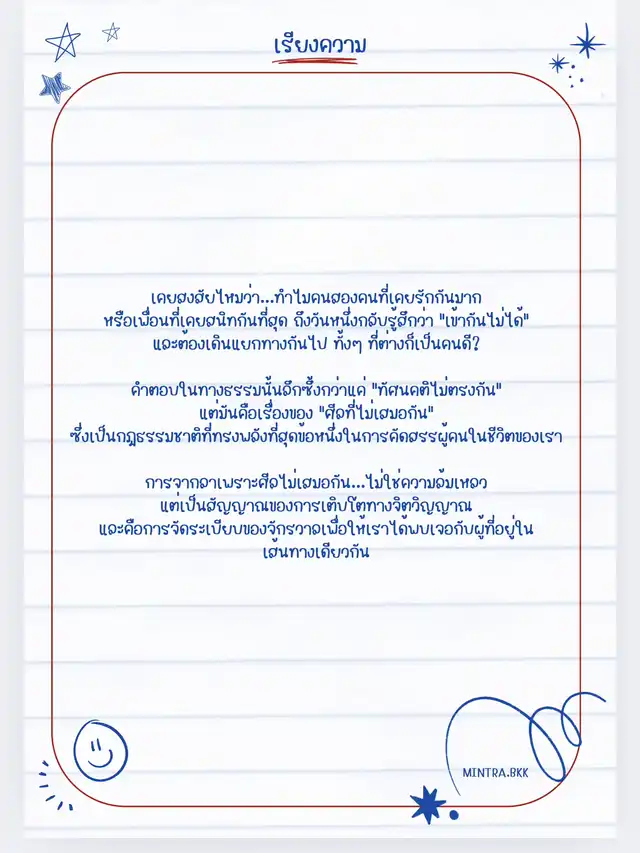 เรียงความ
เคยสงสัยไหมว่า...ทำไมคนสองคนที่เคยรักกันมาก
หรือเพื่อนที่เคยสนิทกันที่สุด ถึงวันหนึ่งกลับรู้สึกว่า "เข้ากันไม่ได้"
และต้องเดินแยกทางกันไป ทั้งๆ ที่ต่างก็เป็นคนดี?
คำตอบในทางธรรมนั้นลึกซึ้งกว่าแค่ "ทัศนคติไม่ตรงกัน"
แต่มันคือเรื่องของ "ศีลที่ไม่เสมอกัน"
ซึ่งเป็นกฎธรรมชาติที่ทรงพลังที่สุดข้อหนึ่งในการคัดสรรผู้คนในชีวิตของเรา
การจากลาเพราะศีลไม่เสมอกัน...ไม่ใช่ความล้มเหลว
แต่เป็นสัญญาณของการเติบโตทางจิตวิญญาณ
และคือการจัดระเบียบของจักรวาลเพื่อให้เราได้พบเจอกับผู้ที่อยู่ใน
เส้นทางเดียวกัน
MINTRA.BKK